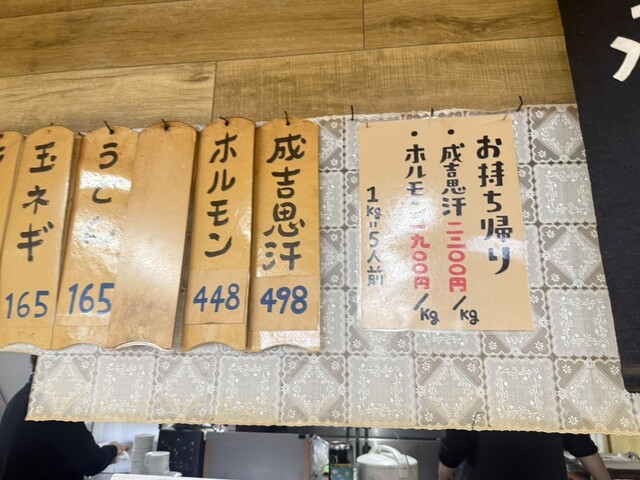 お持ち帰り
・成吉思汗 二三〇〇円/kg
・ホルモン 一九〇〇円/kg
1kg=5人前
成吉思汗
498
ホルモン
448
165
玉ネギ
165